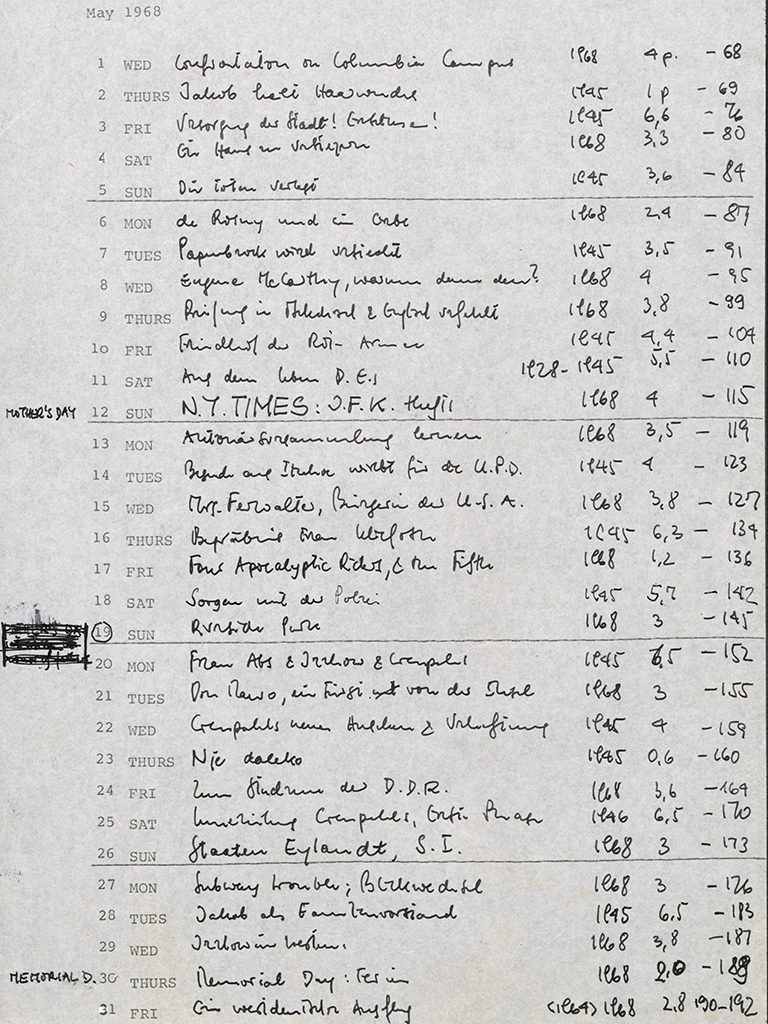 May 1968
1 WED Confrontation on Columbia Campus 1968 4 p. – 68
2 THURS Jakob 1945 1 p – 69
3 FRI Versorgung der Stadt! 1945 6,6 – 76
4 SAT Ein Haus zu 1968 3,3 – 80
5 SUN Die Toten 1945 3,6 – 84
6 MON de Rosny und ein 1968 2,4 – 87
7 TUES Papenbrock wird 1945 3,5 – 91
8 WED Eugene McCarthy, warum denn den? 1968 4 – 95
9 THURS Prüfung in & 1968 3,8 – 99
10 FRI Friedhof der Rot. Armee 1945 4,4 – 104
11 SAT Aus dem Leben D. E.s 1928 – 1945 5,5 – 110
MOTHER'S DAY 12 SUN N.Y. TIMES: J.F.K. 1968 4 – 115
13 MON lernen 1968 3,5 – 119
14 TUES Besuch aus Itzehoe wirbt für die U.P.D. 1945 4 – 123
15 WED Mrs. Ferwalter, Bürgerin der U.S.A. 1968 3,8 – 127
16 THURS Begräbnis Frau 1945 6,3 – 134
17 FRI Four Apocalyptic Riders, & the Fifth 1968 1,2 – 136
18 SAT Sorgen mit der Polizei 1945 5,7 – 142
19 SUN Riverside Park 1968 3 – 145
20 MON Frau Abs & Jerichow & Cresspahl 1945 6,5 – 152
21 TUES Don Mauro, ein Fürst von der Insel 1968 3 – 155
22 WED Cresspahls neues Ansehen & Verhaftung 1945 4 – 159
23 THURS Nje daleko 1945 0,6 – 160
24 FRI Zum Studium der D.D.R. 1968 3,6 – 164
25 SAT Cresspahls, Erste Phase 1946 6,5 – 170
26 SUN Staaten Eylandt, S. I. 1968 3 – 173
27 MON Subway trouble; Blickwechsel 1968 3 – 176
28 TUES Jakob als Familienvorstand 1945 6,5 – 183
29 WED 1968 3,8 – 187
MEMORIAL D. 30 THURS Memorial Day: Ferien 1968 2,0 – 189
31 FRI Ein westdeutscher Ausflug (1964) 1968 2,8 190–192